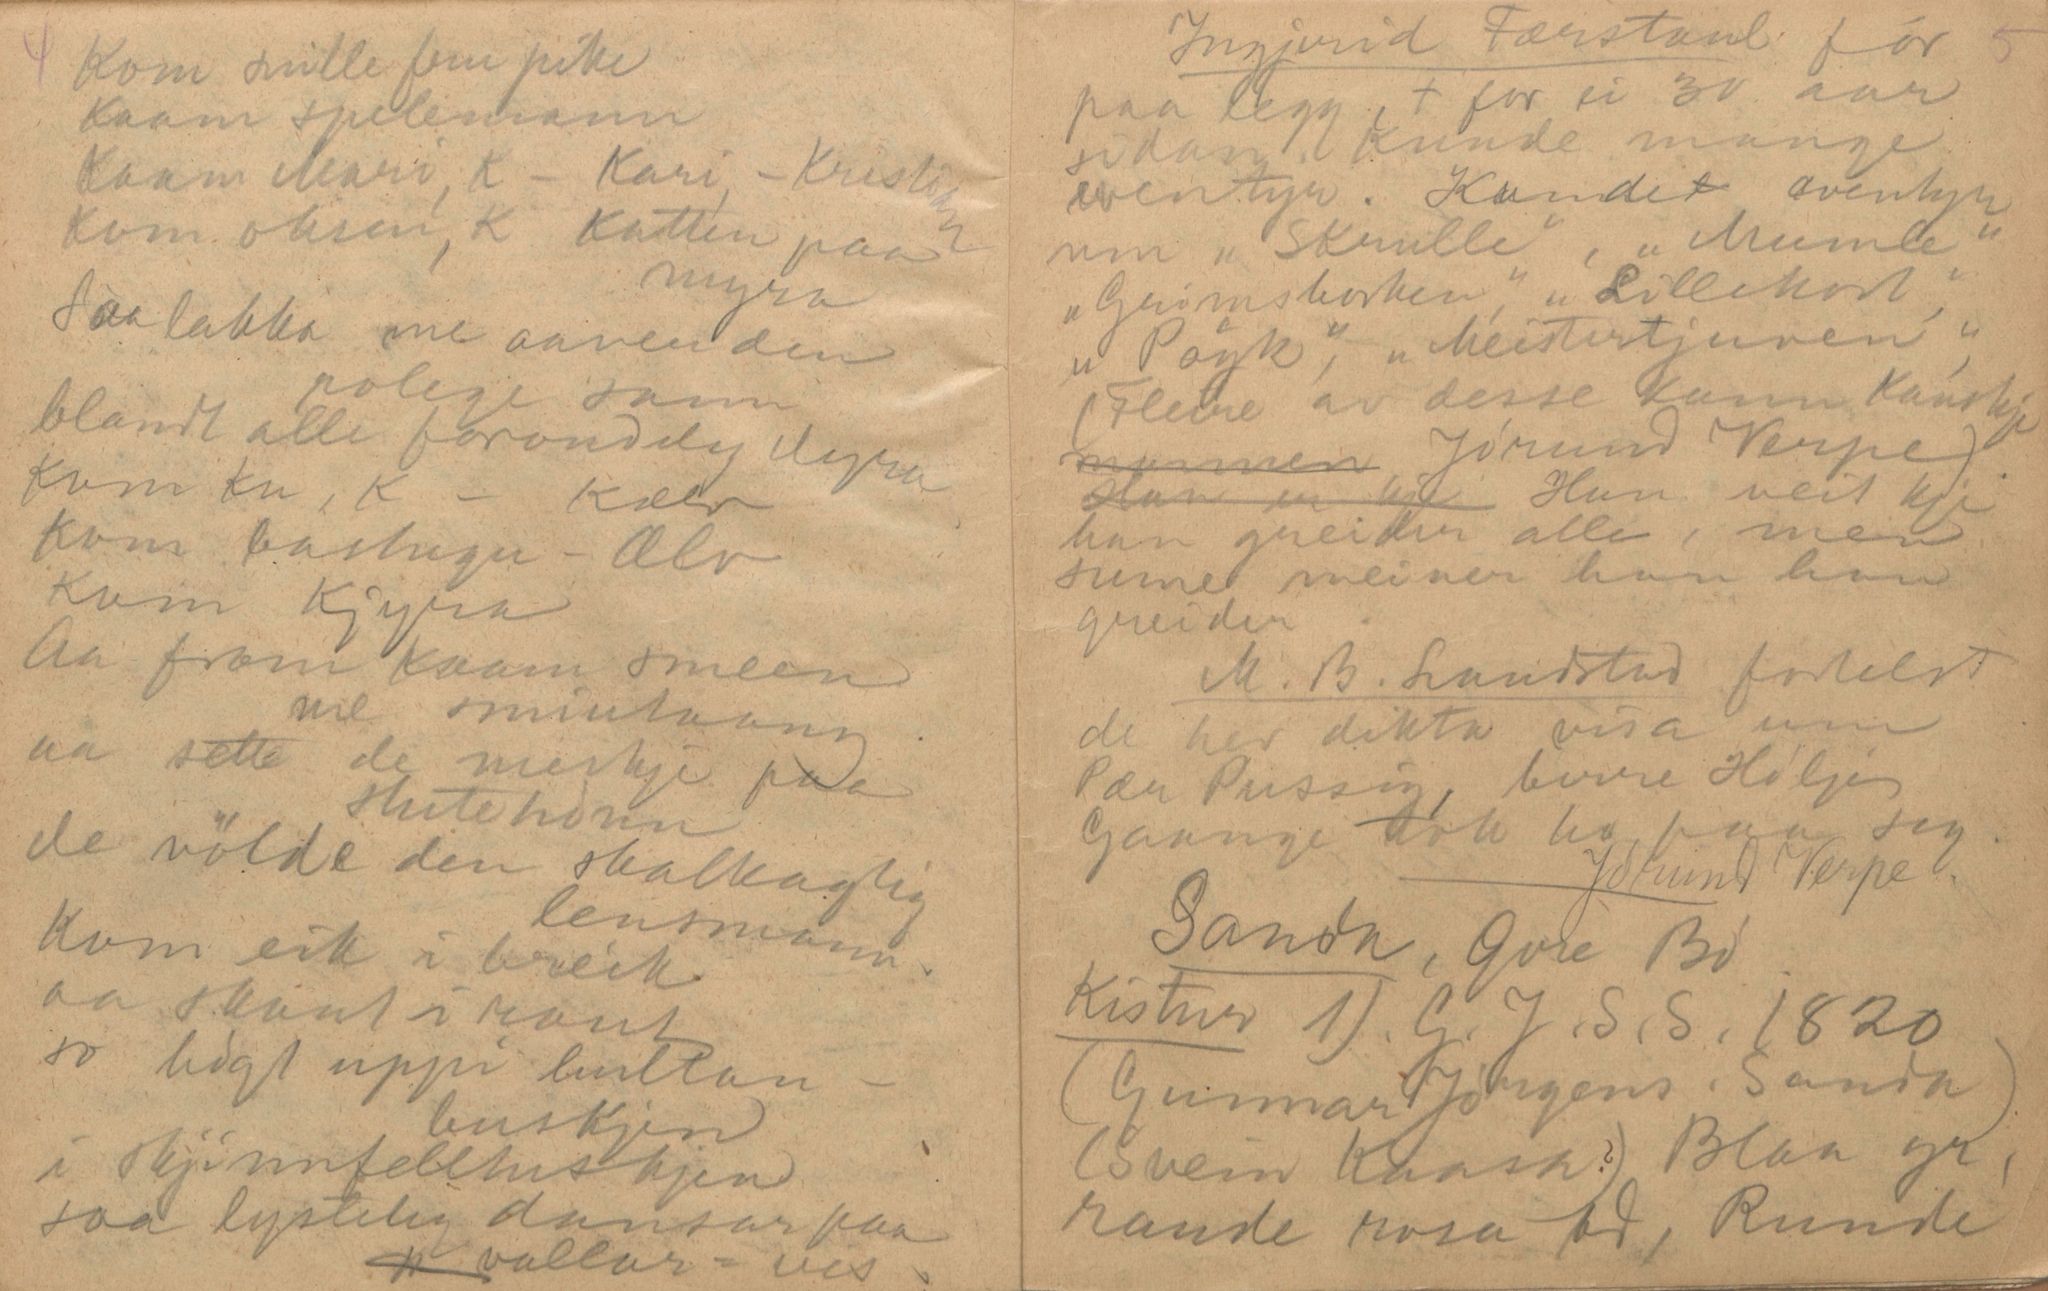 4
Kom snille fem pike
Kaam spelemann
Kaam Mari, K – Kari, – Kristian
Kom oksen, K Katten paa
myra
Saa lakka me aavenden
rolege samn
blandt alle forondeleg dyra
Kom Ku, K – Kalv
Kom bastugu – Ælv
Kom Kjyra
Aa fram Kaam smeen
me smiutaang
aa sette de merkje paa
stutehonn
de völde den skalkagtig
lensmann.
Kom eik i breik
aa skaut i raut
so högt uppi bullan –
buskjen
i skjinnfellhuskjen
saa lysteleg dansar paa
vallar – vis.
5
Ingjerid Færstaul fór
paa legg, + for ei 30 aar
sidan. Kunde mange
eventyr. Kunde eventyr
um „Skrulle“, „Mumle“
„Grimsborken“, „Lillekort“,
„Pöyk“, „Meistertjuven“,
(Fleire av desse kann Kanskje
mannen Jórund Verpe).
Han er kje Han veit kje
han greider alle, men
sume meiner han han
greider.
M. B. Landstad fortelst
de her dikta visa um
Pær Pussig, borre Hóljes
Gaange tók ho paa seg.
Jórund Verpe.
Sanda, Gvre Bó
Kistur 1). G. J. S. S. 1820
(Gunnar Jórgens. Sanda)
(Svein Kaasa?) Blaa gr,
rande rosa bd, Runde